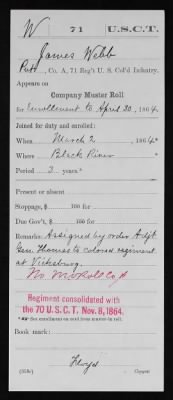 W 71 U.S.C.T.
James Webb
Pvt., Co. A, 71 Reg't U. S. Col'd Infantry.
Appears on
Company Muster Roll
for Enrollment to April 30, 1864.
Joined for duty and enrolled:
When March 2, 1864*
Where Black River
Period 3 years
Present or absent
Stoppage, $ 100 for
Due Gov't, $ 100 for
Remarks: Assigned by order Adjt.
Gen. Thomas to colored regiment
at Vicksburg.
No M. Roll Co. A
Regiment consolidated with
the 70 U. S. C. T. Nov. 8, 1864.
*See enrollment on card from muster-in roll.
Book mark:
Floyd
Copyist.